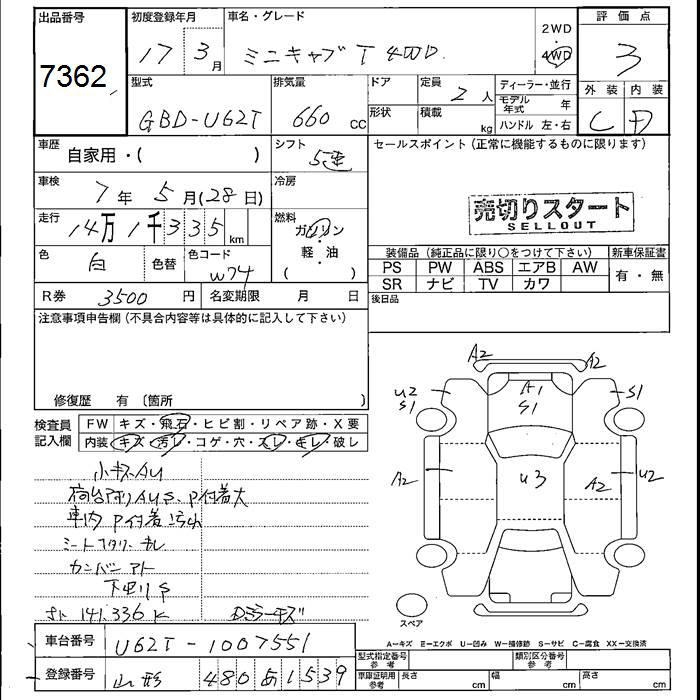 出品番号
7362
初度登録年月
17 3月
車名・グレード
ミニキャブT 4WD
2WD
・
4WD
評価点
3
型式
GBD-U62T
排気量
660 CC
ドア
形状
定員
2人
積載
kg
ディーラー・並行
モデル年式 年
ハンドル 左・右
外装 内装
C D
車歴
自家用・( )
シフト
5速
車検
7年5月(28日)
冷房
走行
14万1千335km
燃料
ガソリン
・
軽・油
( )
色
白
色替
色コード
W74
R券 3500円
名変期限 月 日
セールスポイント(正常に機能するものに限ります)
売切りスタート
SELLOUT
装備品(純正品に限り○をつけて下さい)
新車保証書
PS PW ABS エアB AW
SR ナビ TV カワ
有・無
後日品
注意事項申告欄(不具合内容等は具体的に記入して下さい)
修復歴 有〔箇所 〕
検査員
記入欄
FW キズ・飛石・ヒビ割・リペア跡・X要
内装 キズ・汚レ・コゲ・穴・スレ・キレ・破レ
小キズAU
荷台アオリAUS、P付着大
車内P付着汚れ
カンバンアト
下廻りS
141,336K
A2
A2
U2
S1
A1
S1
S1
A2
U3
A2
U2
スペア
A－キズ E－エクボ U－凹み W－補修跡 S－サビ C－腐食 XX－交換済
車台番号
U62T-1007551
登録番号
山形 480 あ 1539
型式指定番号
参考
類別区分番号
参考
車庫証明用
参考
長さ cm
幅 cm
高さ cm